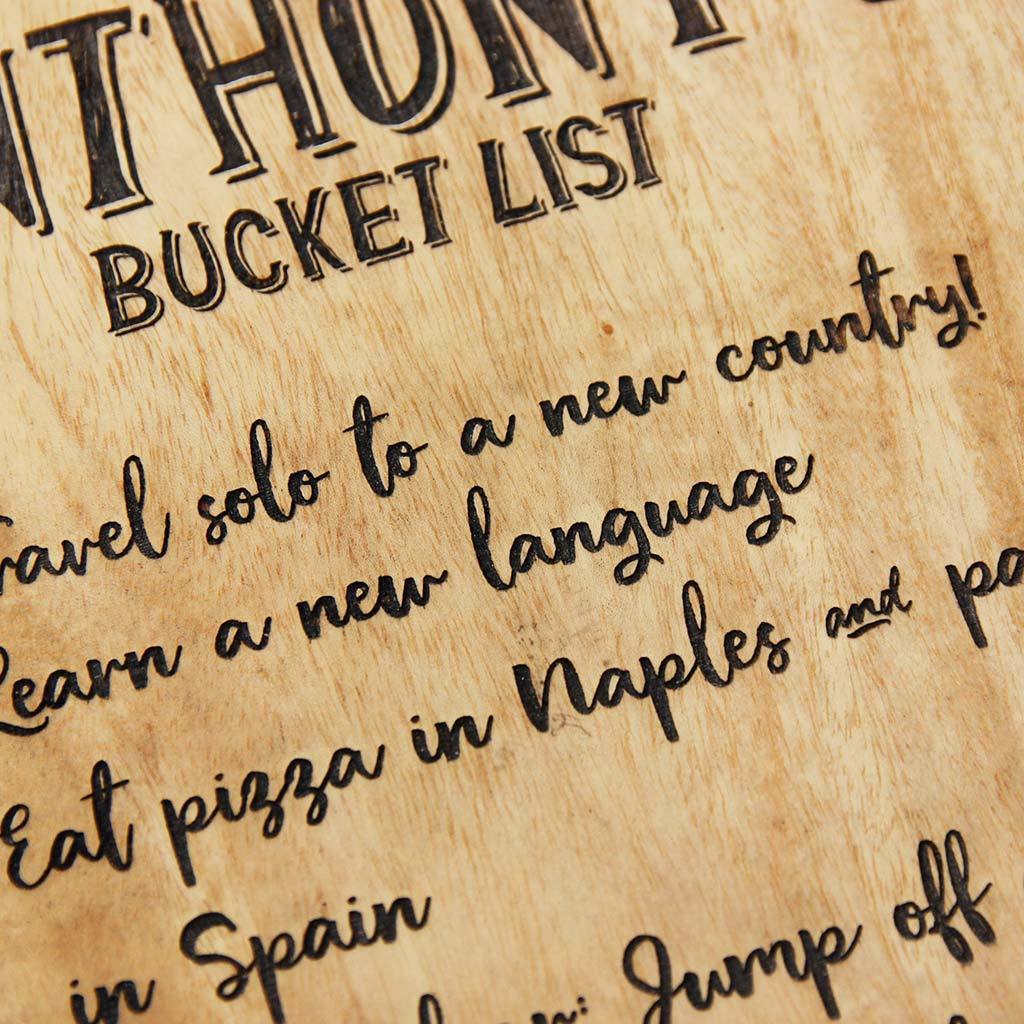 NTHONY'S
BUCKET LIST
Travel solo to a new country!
Learn a new language
Eat pizza in Naples and pa
in Spain
Jump off